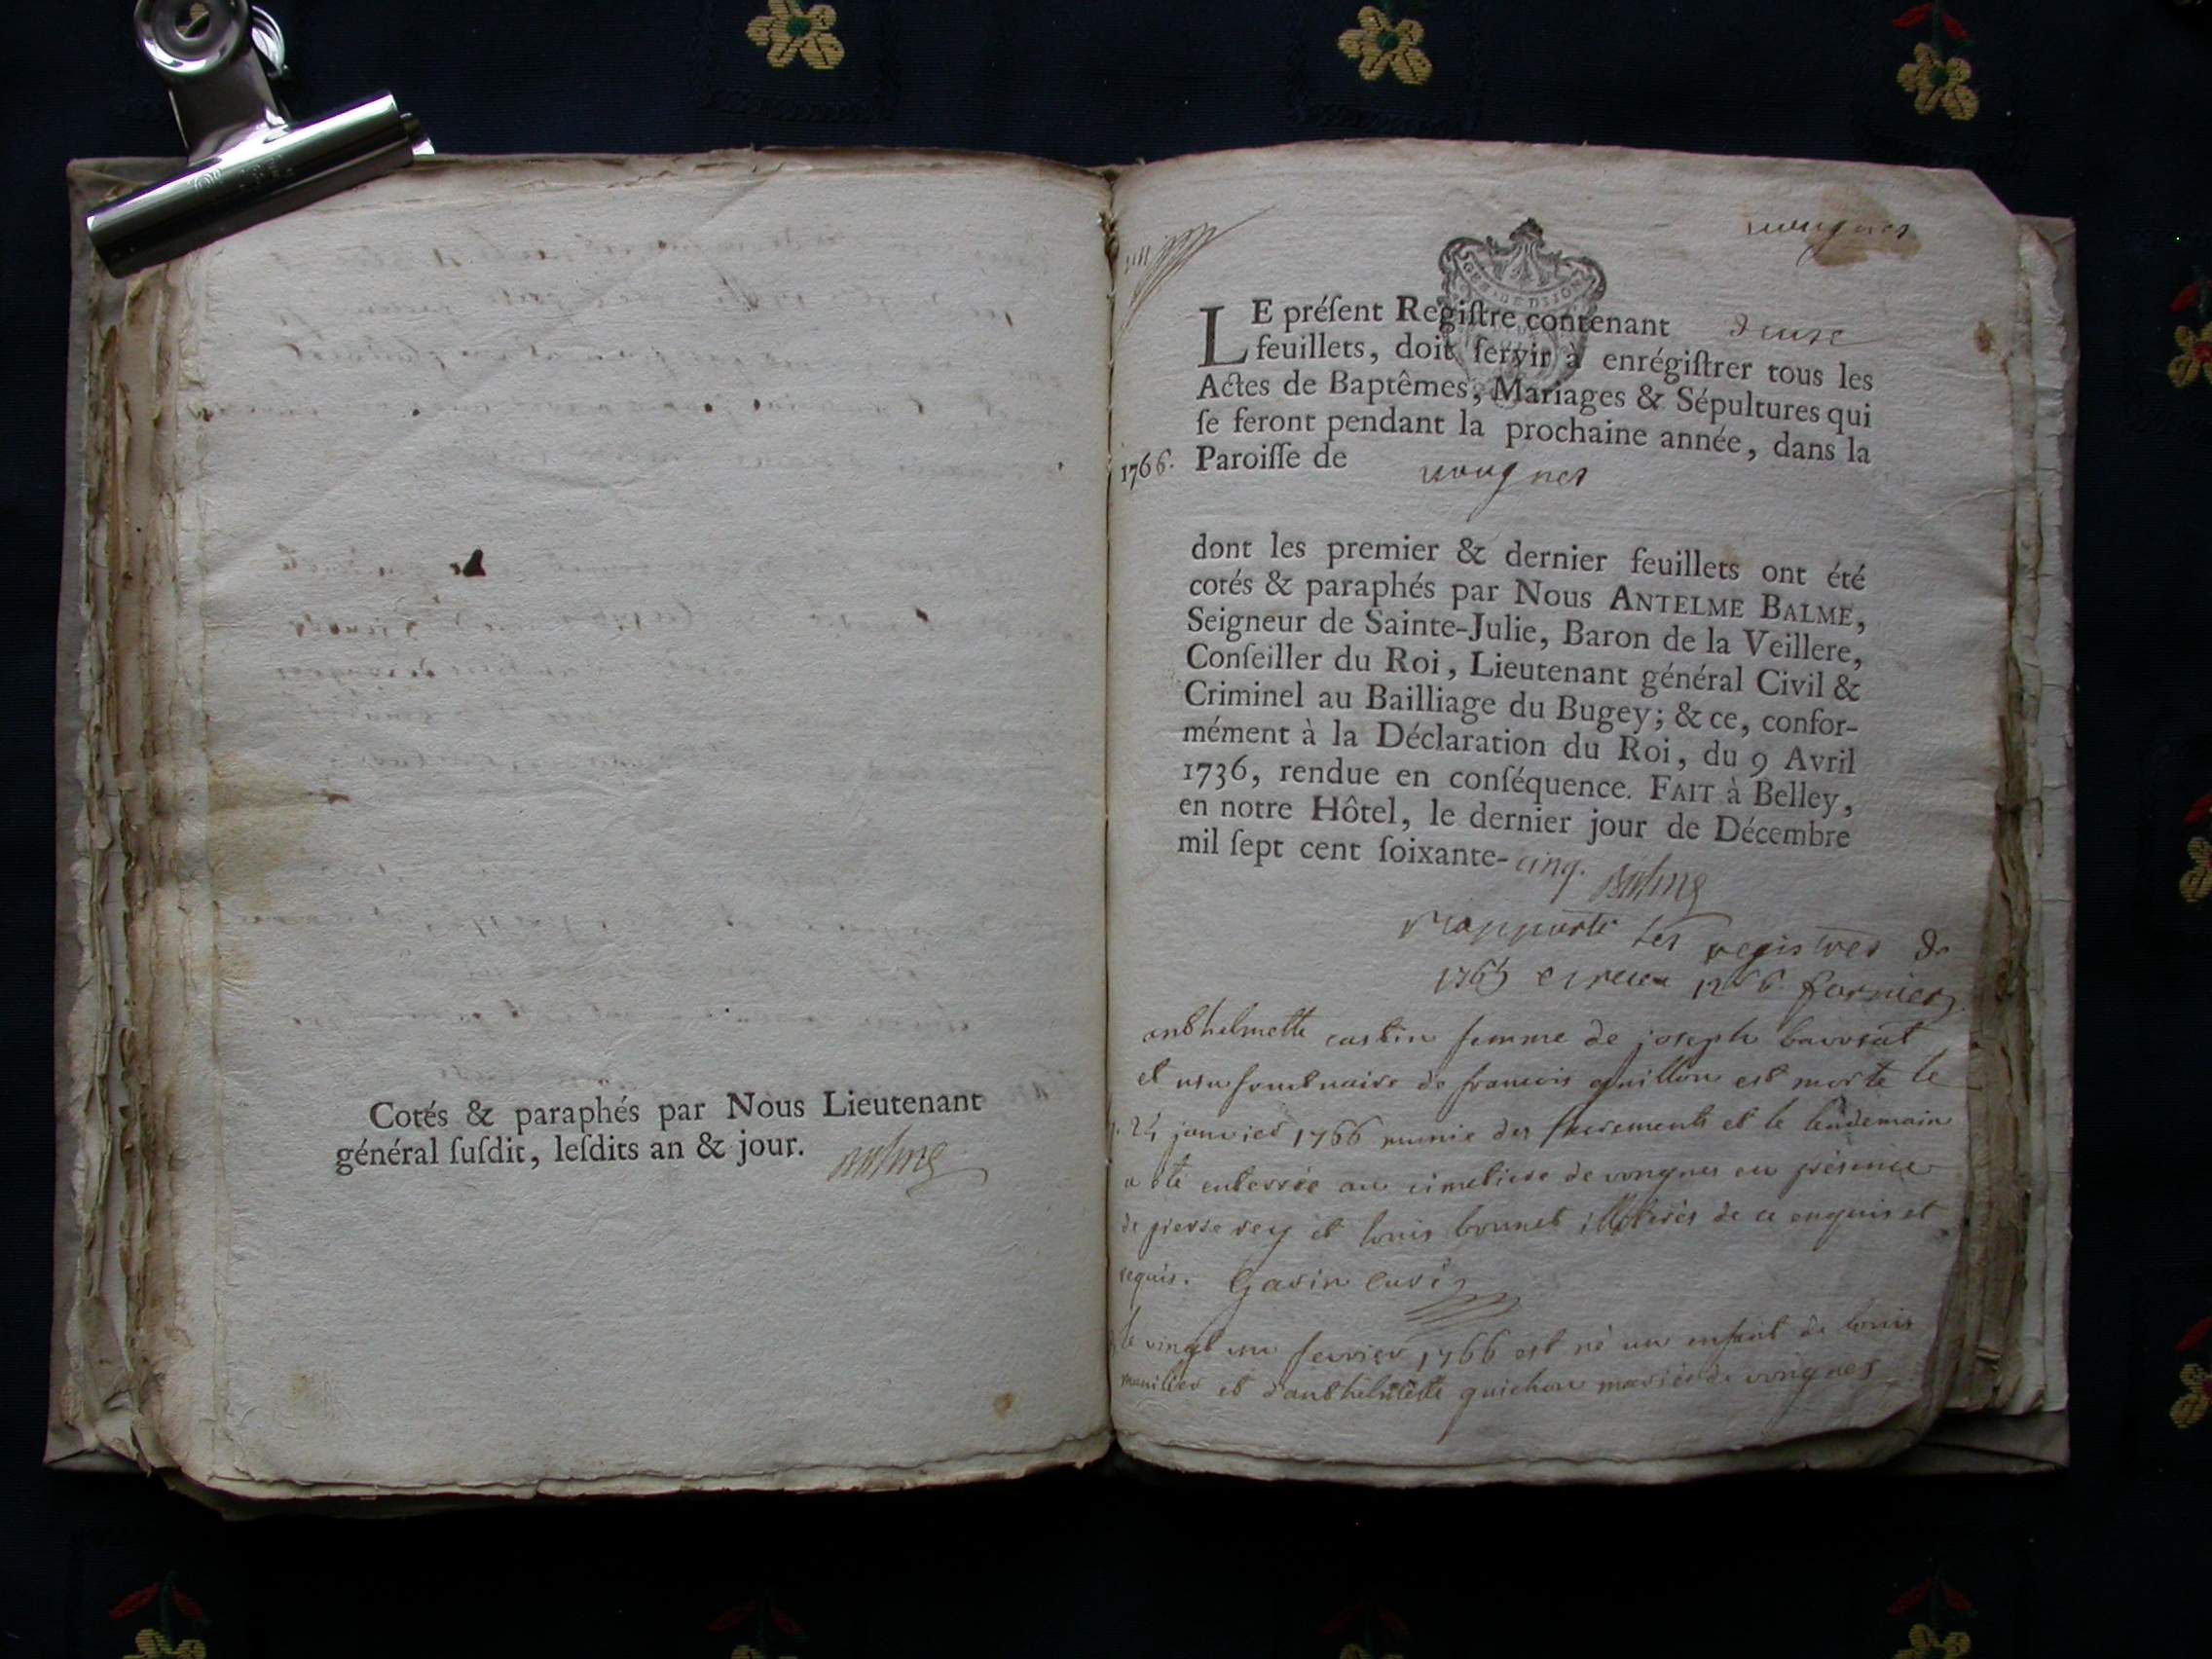 Cotés & paraphés par Nous Lieutenant
général ſuſdit, leſdits an & jour. Balme
GEN · DE DIJON
LE préſent Regiſtre contenant
feuillets, doit ſervir à enrégiſtrer tous les
Actes de Baptêmes, Mariages & Sépultures qui
ſe feront pendant la prochaine année, dans la
1766. Paroiſſe de vougnes
dont les premier & dernier feuillets ont été
cotés & paraphés par Nous ANTELME BALME,
Seigneur de Sainte-Julie, Baron de la Veillere,
Conſeiller du Roi, Lieutenant général Civil &
Criminel au Bailliage du Bugey; & ce, confor-
mément à la Déclaration du Roi, du 9 Avril
1736, rendue en conſéquence. FAIT à Belley,
en notre Hôtel, le dernier jour de Décembre
mil ſept cent ſoixante-cinq. Balme
rapporté les registres de
1765
anthelmette castin femme de joseph
et usufruituaire de francois guillon est morte le
24 janvier 1766 munie des sacrements et le lendemain
a été enterrée au cimetiere de vongnes en présence
de pierre rey et louis brunet illitérés de ce enquis et
requis. Gavin Curé
le vingt un fevrier 1766 est né un enfant de louis
et d'anthelmette guichon mariés de vongnes